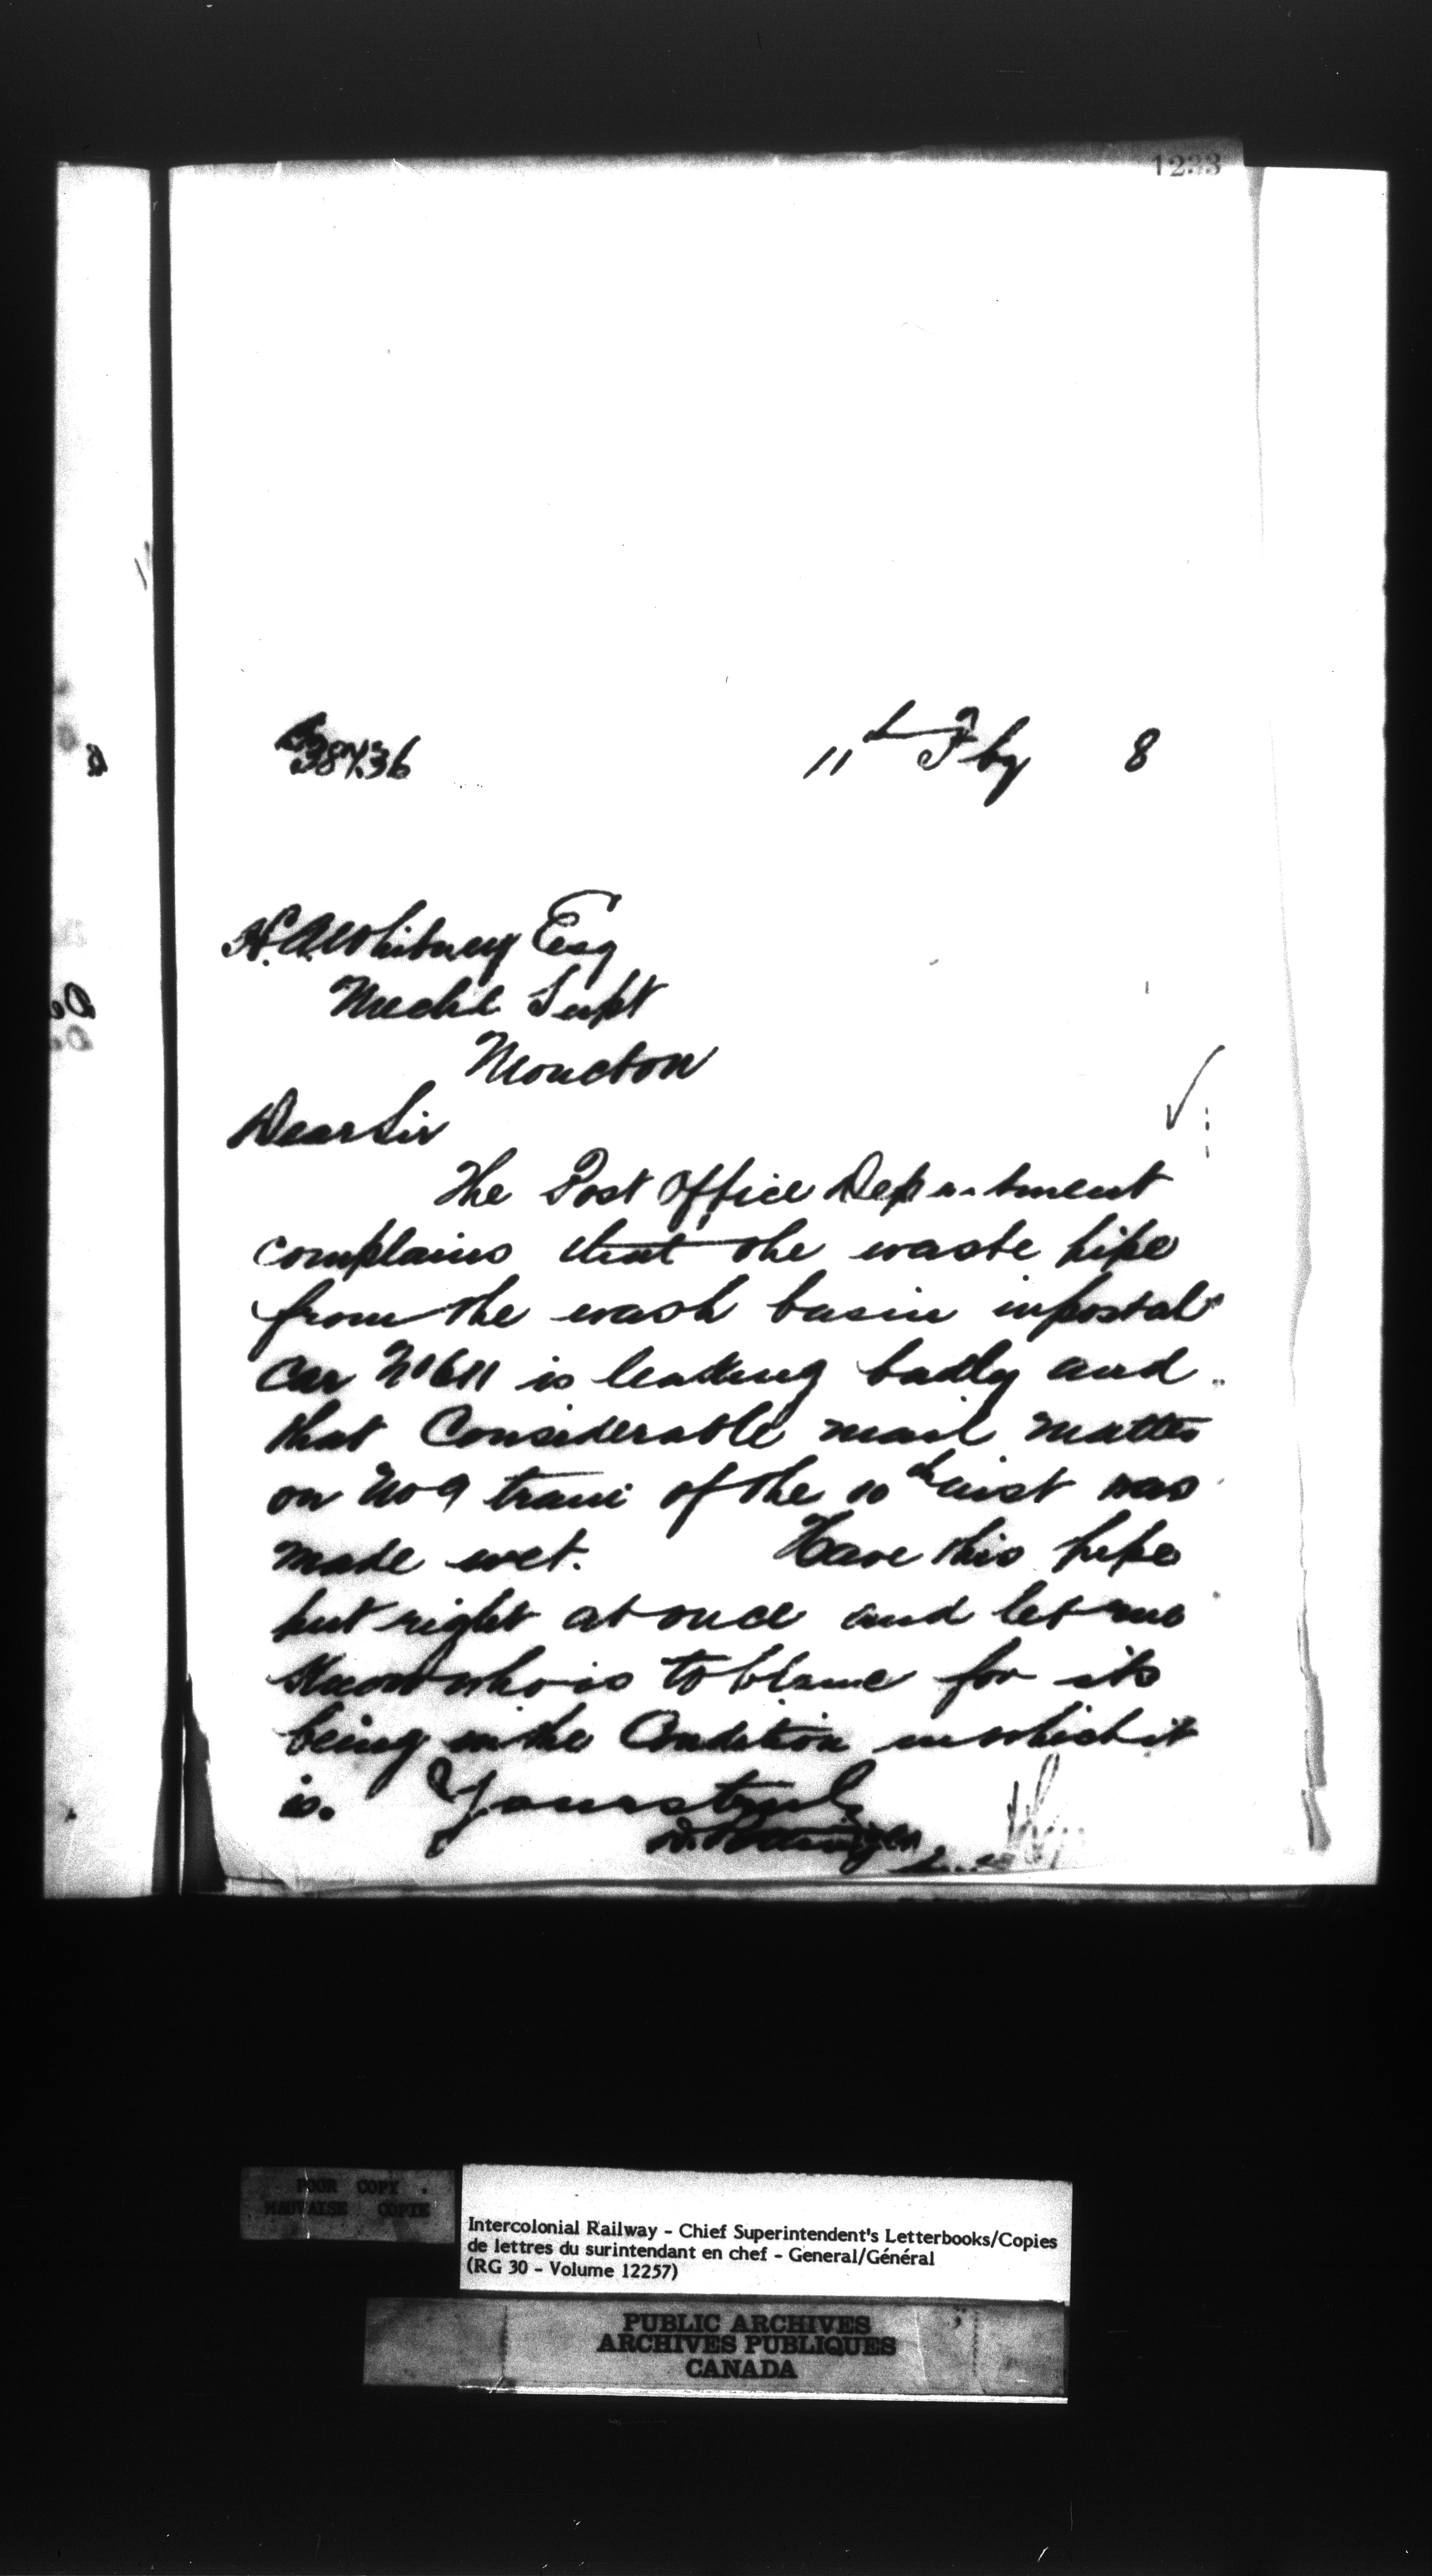 1233
38736
11th Fby 8
H. A. Whitney Esq
Mechl Supt
Moncton
Dear Sir
The Post Office Department
complains that the waste pipe
from the wash basin in postal
car No 611 is leaking badly and
that Considerable mail matter
on No 9 train of the 10th inst was
made wet. Have this pipe
put right at once and let me
know who is to blame for its
being in the Condition in which it
is. Yours truly
D. Pottinger
POOR COPY
MAUVAISE COPIE
Intercolonial Railway - Chief Superintendent's Letterbooks/Copies
de lettres du surintendant en chef - General/Général
(RG 30 - Volume 12257)
PUBLIC ARCHIVES
ARCHIVES PUBLIQUES
CANADA